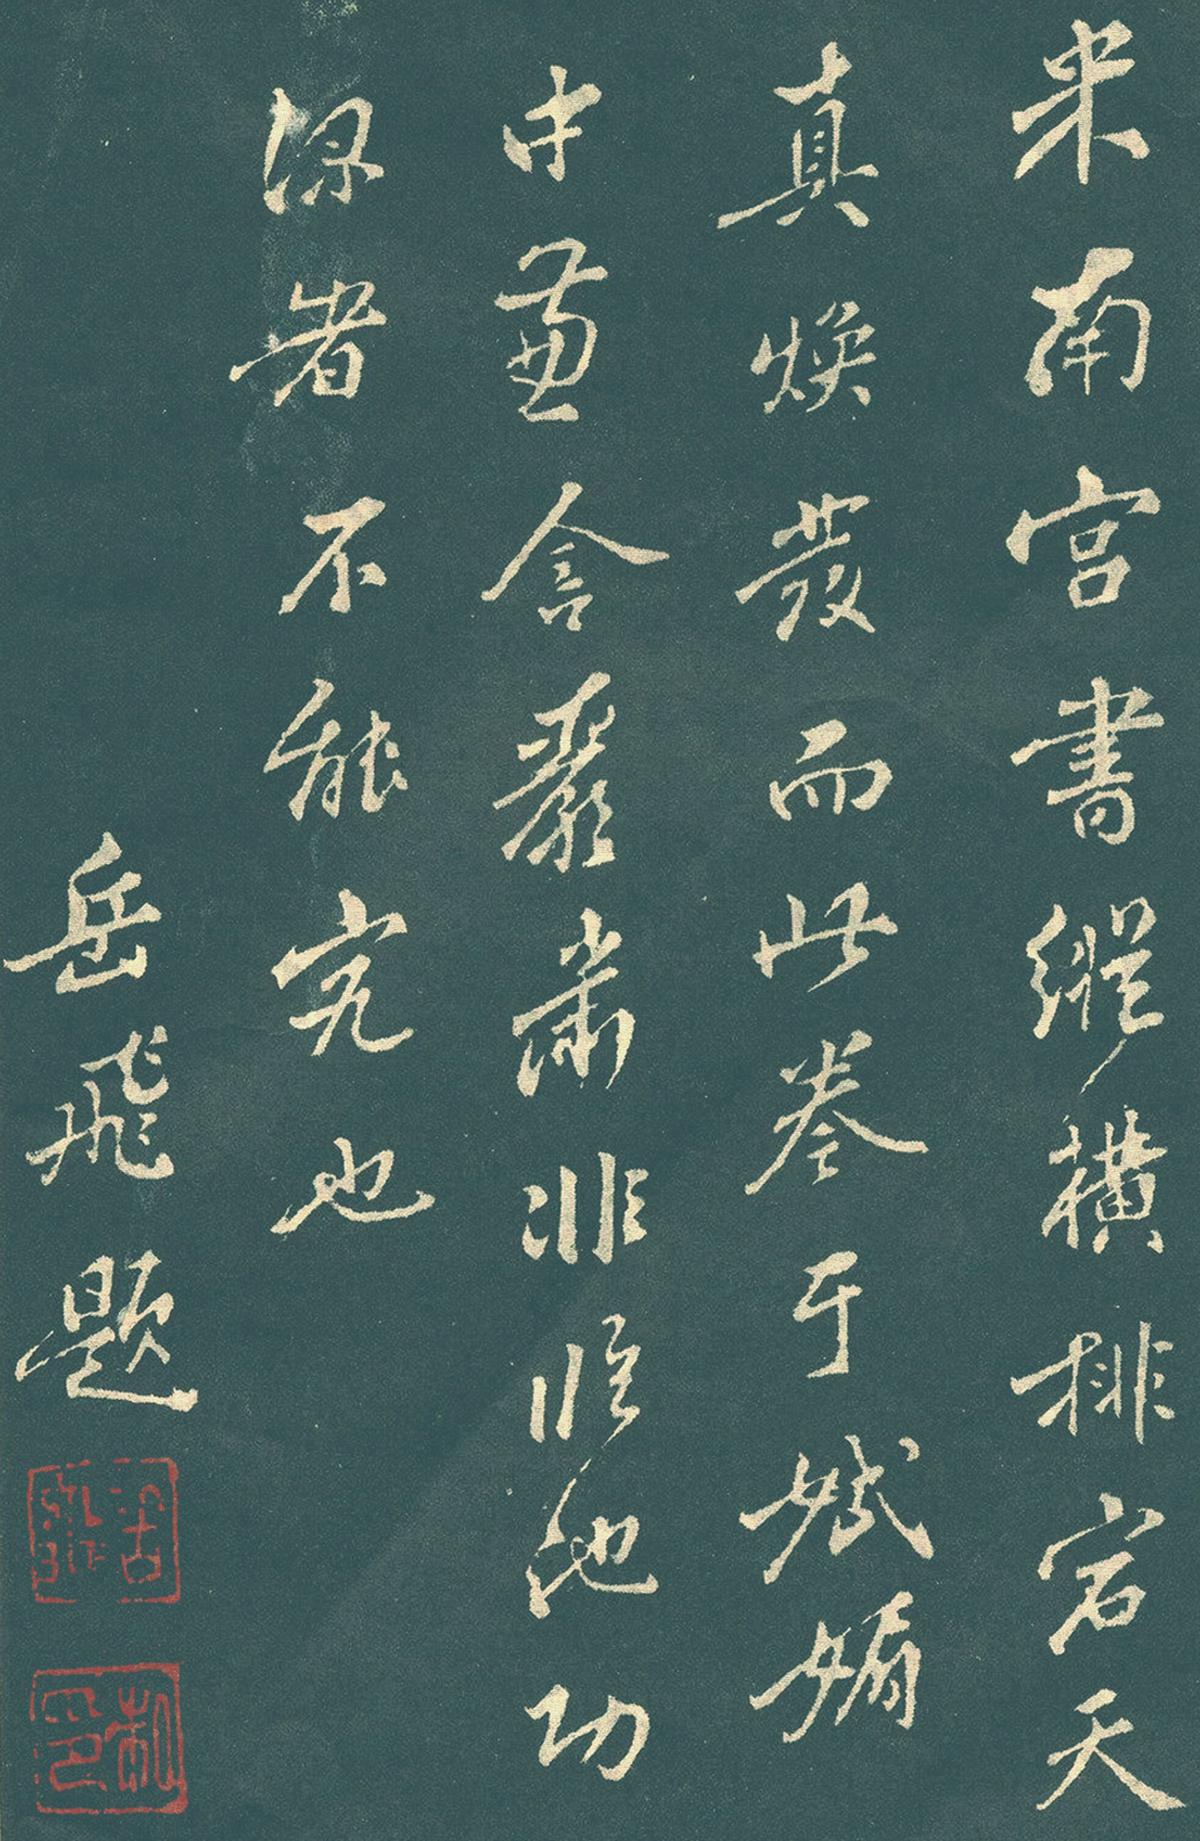 米南宮書縱橫排宕天
真煥發而此卷于斌媚
中兼含嚴肅非臨池功
深者不能究也
岳飛題